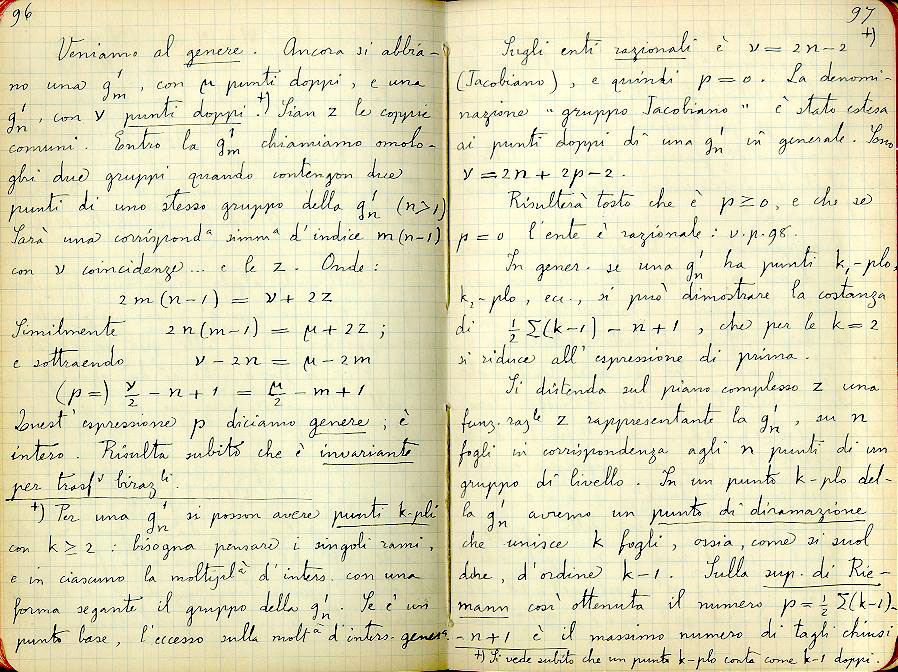 96
Veniamo al genere. Ancora si abbia-
no una g¹ₘ, con μ punti doppi, e una
g¹ₙ, con ν punti doppi.⁺⁾ Sian z le coppie
comuni. Entro la g¹ₘ chiamiamo omolo-
ghi due gruppi quando contengon due
punti di uno stesso gruppo della g¹ₙ (n>1)
Sarà una corrispondᵃ simmᵃ d'indice m(n-1)
con ν coincidenze ... e le z. Onde:
2m(n-1) = ν + 2z
Similmente 2n(m-1) = μ + 2z ;
e sottraendo ν - 2n = μ - 2m
(p=) ν/2 - n + 1 = μ/2 - m + 1
Quest'espressione p diciamo genere ; è
intero. Risulta subito che è invariante
per trasfⁱ birazˡⁱ.
+) Per una g¹ₙ si posson avere punti k-pli
con k ≥ 2 : bisogna pensare i singoli rami,
e in ciascuno la moltiplᵃ d'inters. con una
forma segante il gruppo della g¹ₙ. Se è un
punto base, l'eccesso sulla moltᵃ d'inters. generᵃ.
97
Sugli enti razionali è ν = 2n-2 ⁺⁾
(Jacobiano), e quindi p = 0. La denomi-
nazione "gruppo Jacobiano" è stata estesa
ai punti doppi di una g¹ₙ in generale. Sono
ν = 2n + 2p - 2.
Risulterà tosto che è p ≥ 0, e che se
p = 0 l'ente è razionale : v. p. 98.
In gener. se una g¹ₙ ha punti k₁-plo,
k₂-plo, ecc., si può dimostrare la costanza
di ½ Σ(k-1) - n + 1 , che per le k = 2
si riduce all'espressione di prima.
Si distenda sul piano complesso z una
funz. razˡᵉ z rappresentante la g¹ₙ, su n
fogli in corrispondenza agli n punti di un
gruppo di livello. In un punto k-plo del-
la g¹ₙ avremo un punto di diramazione
che unisce k fogli, ossia, come si suol
dire, d'ordine k-1. Sulla sup. di Rie-
mann così ottenuta il numero p = ½ Σ(k-1)-
- n + 1 è il massimo numero di tagli chiusi
+) Si vede subito che un punto k-plo conta come k-1 doppi.